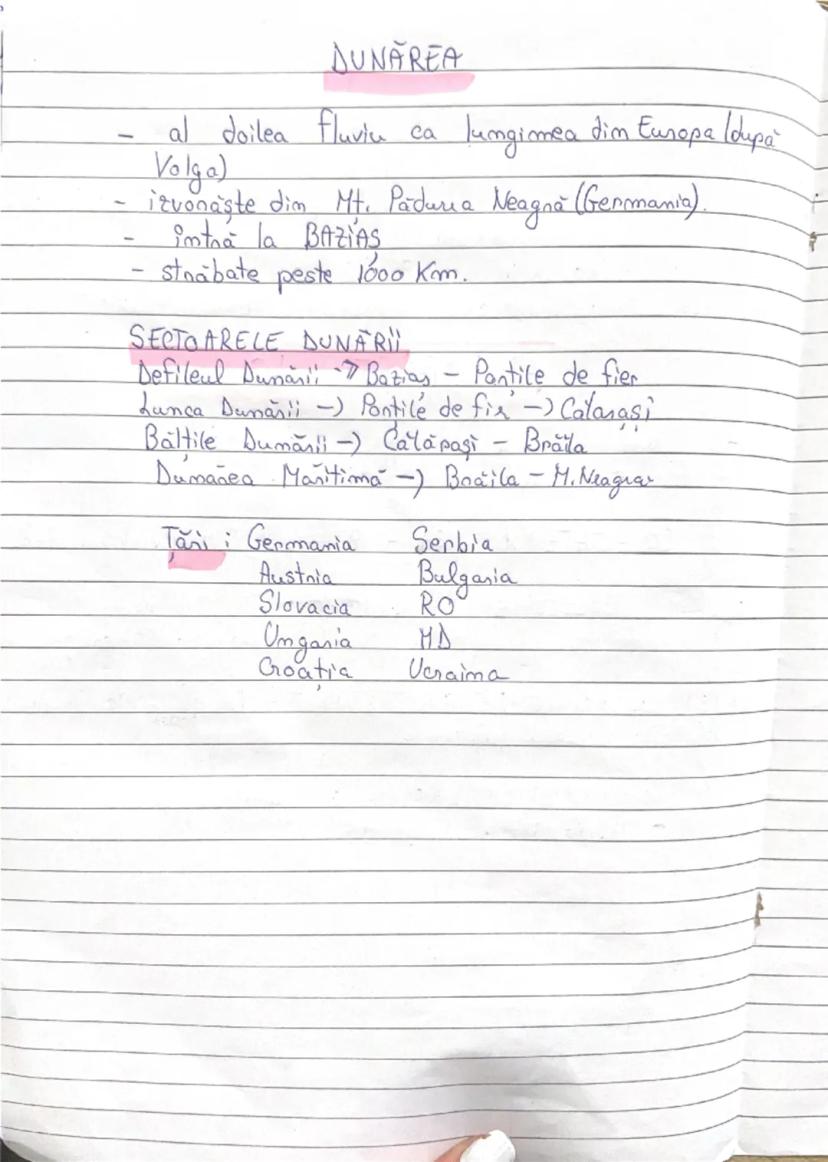 DUNĂREA
- al doilea fluviu ca lungimea din Europa (după
Volga)
- izvorăște din Mț. Pădurea Neagră (Germania).
- intră la BAZIAȘ
- străbate peste 1000 Km.
SECTOARELE DUNĂRII
Defileul Dunării -> Baziaș - Porțile de fier
Lunca Dunării -> Porțile de fir -> Călărași
Bălțile Dunării -> Călărași - Brăila
Dunărea Maritimă -> Brăila - M. Neagra
Țări : Germania Serbia
Austria Bulgaria
Slovacia RO
Ungaria MD
Croația Ucraina